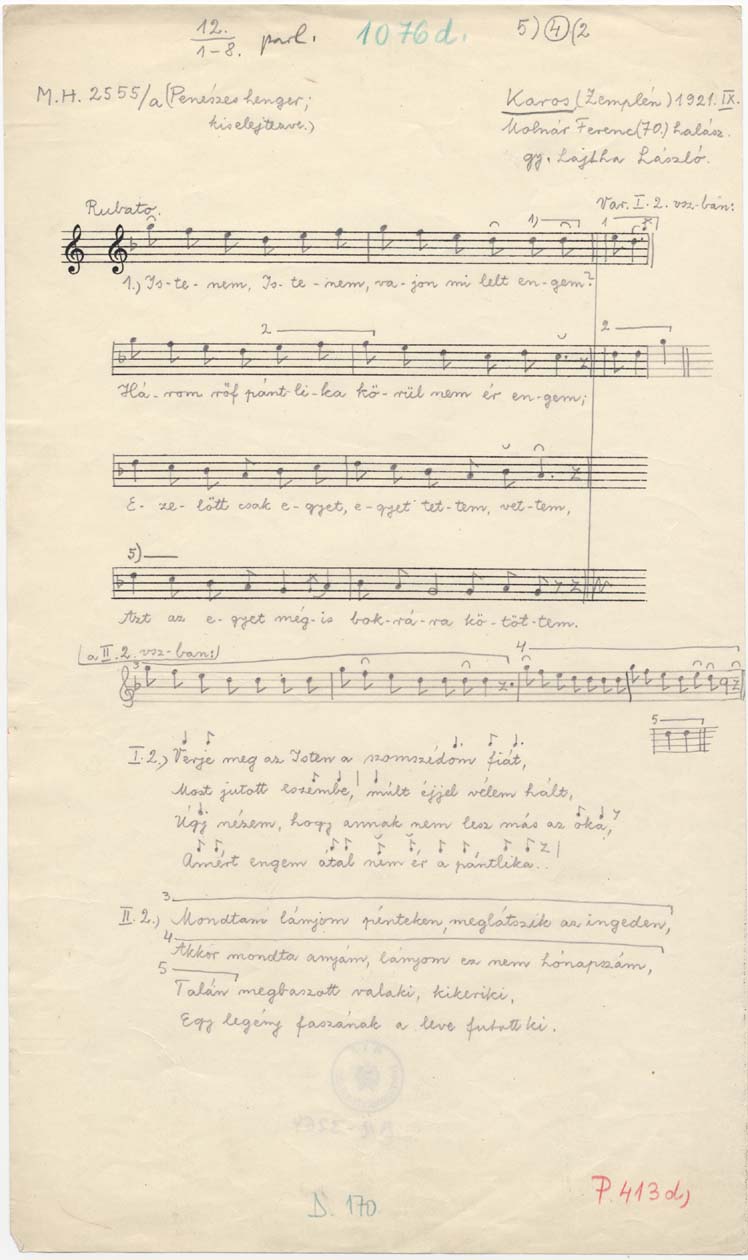 12. parl. 1076d. 5) 4 (2
1-8.
M.H. 2555/a (Penészes henger; Karos (Zemplén) 1921. IX.
Molnár Ferenc (70.) halász.
gy. Lajtha László.
Rubato. Var. I. 2. vsz-ban:
1) 1
1.) Is-te-nem, Is-te-nem, va-jon mi lelt en-gem?
2 2
Há-rom rőf pánt-li-ka kö-rül nem ér en-gem;
E-ze-lőtt csak e-gyet, e-gyet tet-tem, vet-tem,
5)
Azt az e-gyet még-is bok-rá-ra kö-töt-tem.
(a II. 2. vsz-ban:)
3 4
5
I. 2.) Verje meg az Isten a szomszédom fiát,
Most jutott eszembe, múlt éjjel vélem hált,
Úgy nézem, hogy annak nem lesz más az oka,
Amért engem átal nem ér a pántlika..
3
II. 2.) Mondtam lányom pénteken, meglátszik az ingeden,
4
Akkor mondta anyám, lányom ez nem hónapszám,
5
Talán megbaszott valaki, kikeriki,
Egy legény faszának a leve futott ki.
D. 170 P. 413d)